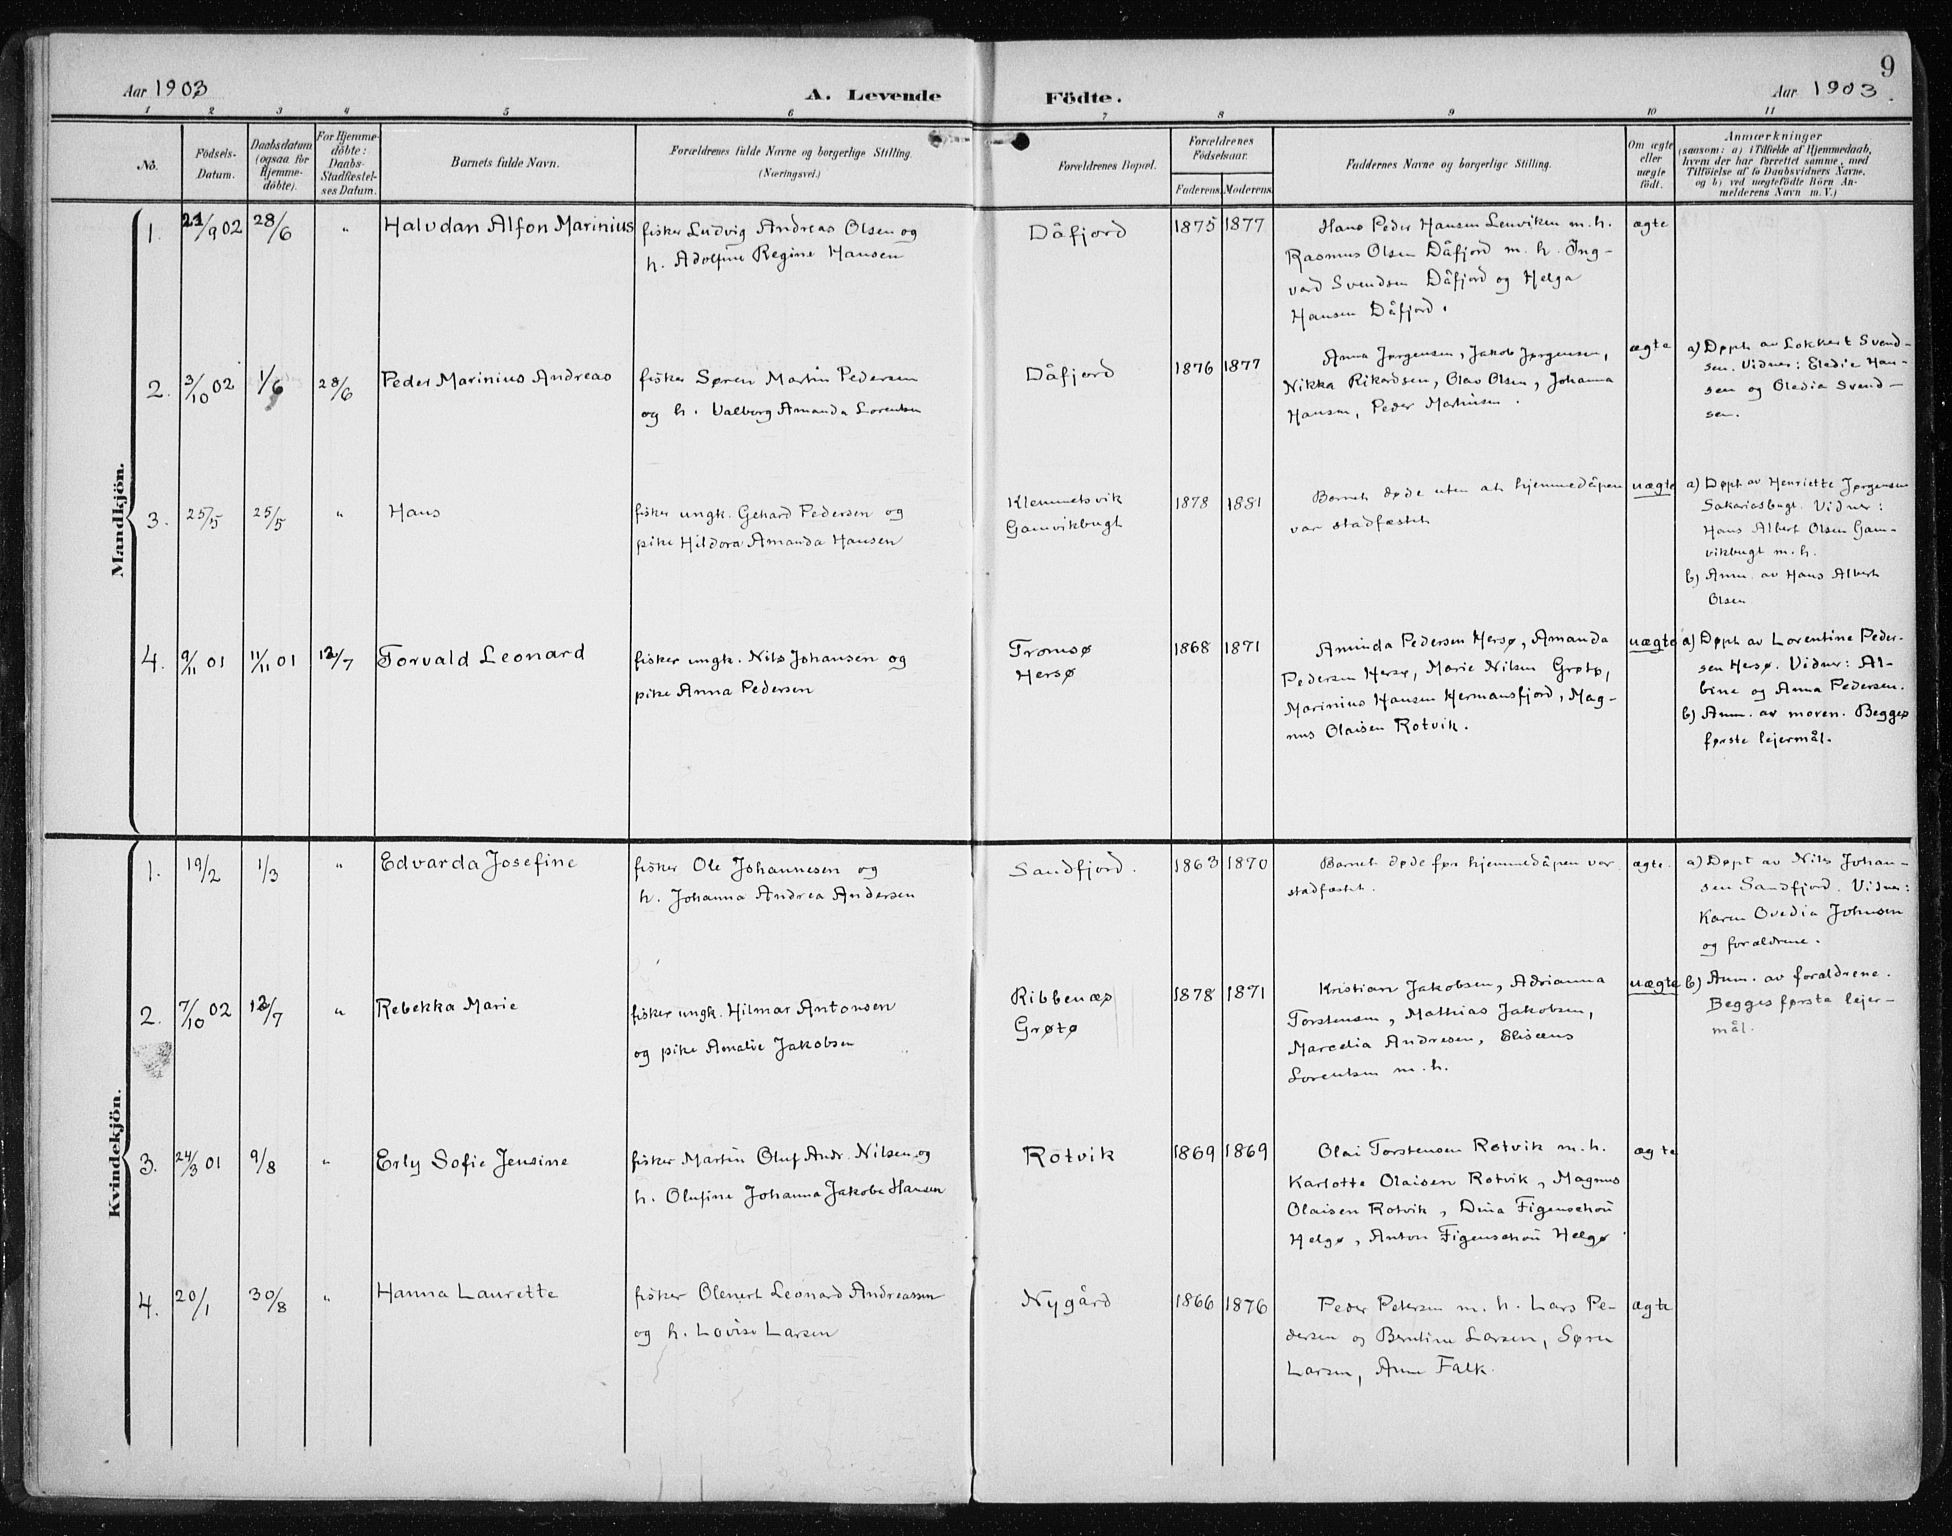 9
Aar 1903
A. Levende
Födte.
Aar 1903.
1 2 3 4 5 6 7 8 9 10 11
No.
Födsels-
Datum.
Daabsdatum
(ogsaa for
Hjemme-
döbte).
For Hjemme-
döbte:
Daabs-
Stadfæstel-
ses Datum.
Barnets fulde Navn.
Forældrenes fulde Navne og borgerlige Stilling.
(Næringsvei.)
Forældrenes Bopæl.
Forældrenes
Födselsaar.
Faderens.
Moderens.
Faddernes Navne og borgerlige Stilling.
Om ægte
eller
uægte
födt.
Anmærkninger
(saasom: a) i Tilfælde af Hjemmedaab,
hvem der har forrettet samme, med
Tilföielse af to Daabsvidners Navne,
og b) ved uægtefödte Börn An-
melderens Navn m. V.)
Mandkjön.
1.
21/9 02
28/6
"
Halvdan Alfon Marinius
fisker Ludvig Andreas Olsen og
h. Adolfine Regine Hansen
Dåfjord
1875
1877
Hans Peder Hansen Lenviken m. h.
Rasmus Olsen Dåfjord m. h. Ing-
vard Svendsen Dåfjord og Helga
Hansen Dåfjord.
ægte
2.
3/10 02
1/6
28/6
Peder Marinius Andreas
fisker Søren Martin Pedersen
og h. Valborg Amanda Lorentsen
Dåfjord
1876
1877
Anna Jørgensen, Jakob Jørgensen,
Nikka Rikardsen, Olav Olsen, Johanna
Hansen, Peder Martinsen.
ægte
a) Døpt av Lokkert Svend-
sen. Vidner: Eledie Han-
sen og Oledia Svend-
sen.
3.
25/5
25/5
"
Hans
fisker ungk. Gehard Pedersen og
pike Hildora Amanda Hansen
Klemmetsvik
Gamvikbugt
1878
1881
Barnet døde uten at hjemmedåpen
var stadfæstet
uægte
a) Døpt av Henriette Jørgensen
Sakariasbugt. Vidner:
Hans Albert Olsen Gam-
vikbugt m. h.
b) Anm. av Hans Albert
Olsen
4.
9/11 01
11/11 01
12/7
Torvald Leonard
fisker ungk. Nils Johansen og
pike Anna Pedersen
Tromsø
Hersø
1868
1871
Aminda Pedersen Hersø, Amanda
Pedersen Hersø, Marie Nilsen Grøtø,
Marinius Hansen Hermansfjord, Mag-
nus Olaisen Rotvik.
uægte
a) Døpt av Lorentine Peder-
sen Hersø. Vidner: Al-
bine og Anna Pedersen.
b) Anm. av moren. Begges
første lejermål.
Kvindekjön.
1.
19/2
1/3
"
Edvarda Josefine
fisker Ole Johannesen og
h. Johanna Andrea Andersen
Sandfjord.
1863
1870
Barnet døde før hjemmedåpen var
stadfæstet.
ægte.
a) Døpt av Nils Johan-
sen Sandfjord. Vidner:
Karen Ovedia Johnsen
og forældrene.
2.
7/10 02
12/7
"
Rebekka Marie
fisker ungk. Hilmar Antonsen
og pike Amalie Jakobsen
Ribbenæs
Grøtø
1878
1871
Kristian Jakobsen, Adrianna
Torstensen, Mathias Jakobsen,
Marcelia Andresen, Elisæus
Lorentsen m. h.
uægte
b) Anm. av forældrene.
Begges første lejer-
mål.
3.
24/3 01
9/8
"
Erly Sofie Jensine
fisker Martin Oluf Andr. Nilsen og
h. Olufine Johanna Jakobe Hansen
Rotvik
1869
1869
Olai Torstensen Rotvik m. h.
Karlotte Olaisen Rotvik, Magnus
Olaisen Rotvik, Dina Figenschoü
Helgø, Anton Figenschoü Helgø
ægte
4.
20/1
30/8
"
Hanna Laurette
fisker Olenert Leonard Andreassen
og h. Lovise Larsen
Nygård
1866
1876
Peder Petersen m. h. Lars Pe-
dersen og Berntine Larsen, Søren
Larsen, Anne Falk.
ægte